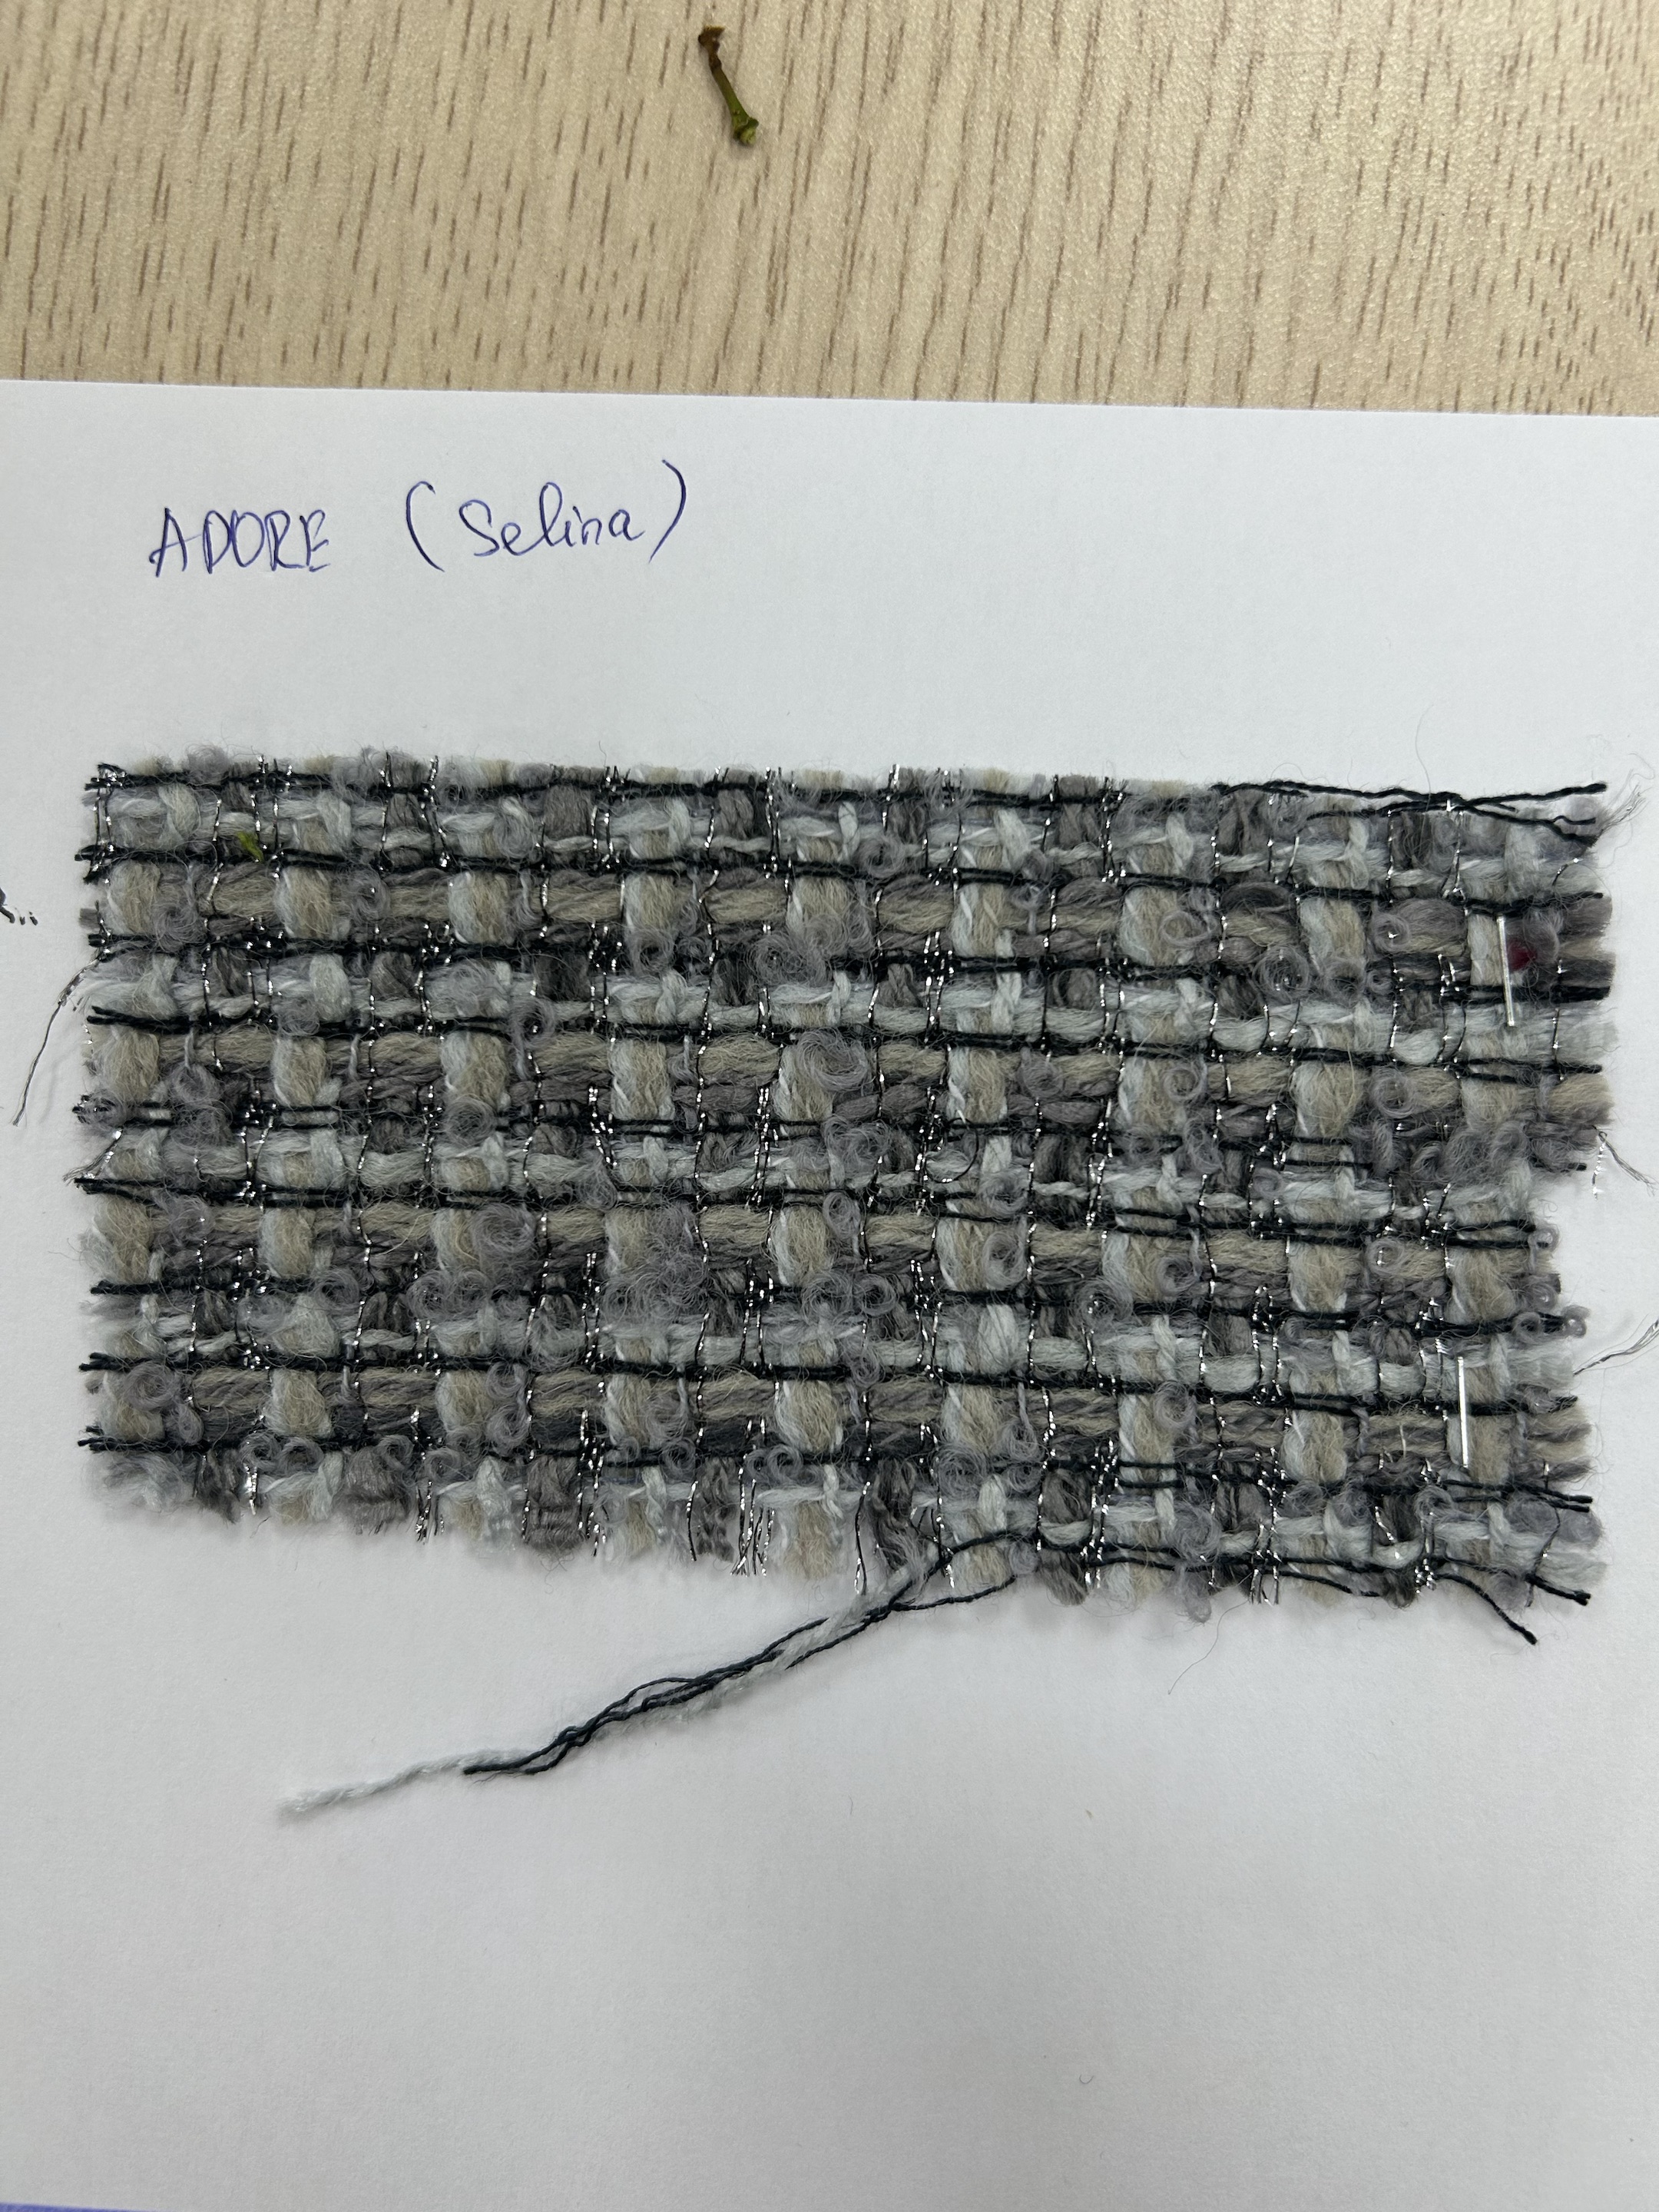 ADORE (Selina)